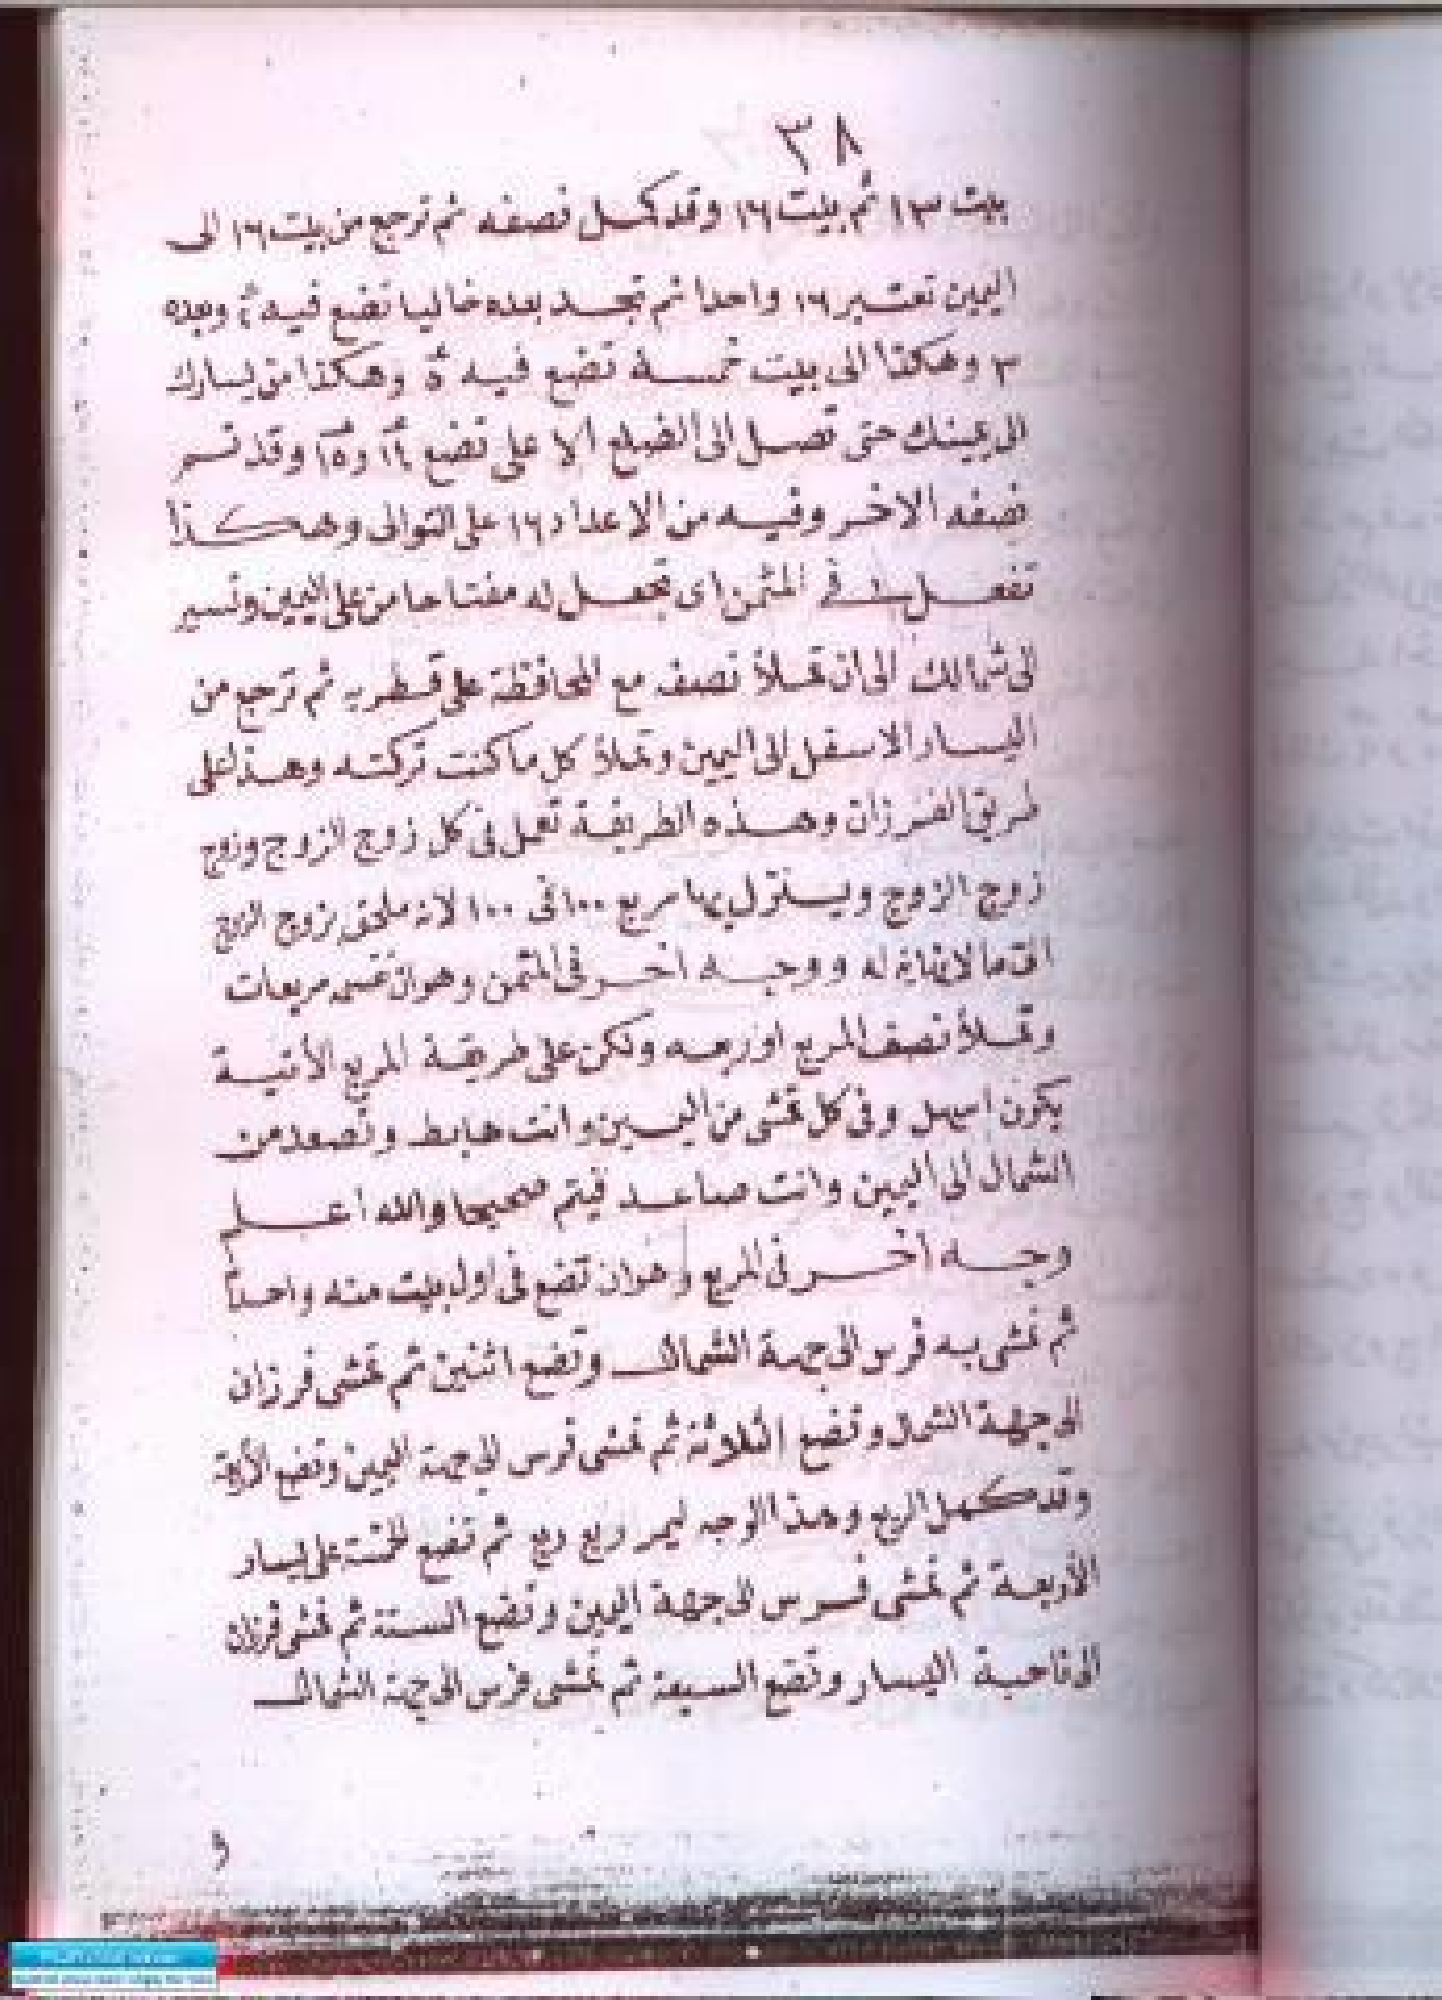 ٣٨
بيت ١٣ ثم بيت ١٦ وقد كمل نصفه ثم ترجع من بيت ١٦ الى
اليمين تعتبر ١٦ واحدا ثم تجد بعده خاليا تضع فيه ٢ وبعده
٣ وهكذا الى بيت خمسة تضع فيه ٥ وهكذا من يسارك
الى يمينك حتى تصل الى الضلع الاعلى تضع ١٤ و١٥ وقد تم
نصفه الاخر وفيه من الاعداد ١٦ على التوالى وهكذا
تفعل فى المثمن اى تجعل له مفتاحا من على اليمين وتسير
الى شمالك الى ان تملأ نصف مع المحافظة على قطريه ثم ترجع من
اليسار الاسفل الى اليمين وتملأ كل ما كنت تركته وهذا على
طريق الفرزان وهذه الطريقة تعمل فى كل زوج الزوج وزوج
زوج الزوج وينزل بها مربع ١٠٠ فى ١٠٠ لانه ملحق بزوج الزوج
الى ما لا نهاية له ووجه اخر فى المثمن وهو ان مربعات
وتملأ نصف المربع او ربعه ولكن على طريقة المربع الأتية
يكون اسهل وفى كل تمشى من اليمين وانت هابط وتصعد من
الشمال الى اليمين وانت صاعد فيتم صحيحا والله اعلم
وجه أخر فى المربع وهو ان تضع فى اول بيت منه واحداً
ثم تمشى به فرس الى جهة الشمال وتضع اثنين ثم تمشى فرزان
الى جهة الشمال وتضع الثلاثة ثم تمشى فرس الى جهة اليمين وتضع الأربعة
وقد كمل الربع وهذا الوجه ربع ربع ثم تضع الخمسة على يسار
الأربعة ثم تمشى فرس الى جهة اليمين وتضع الستة ثم تمشى فرزان
الى ناحية اليسار وتضع السبعة ثم تمشى فرس الى جهة الشمال
و